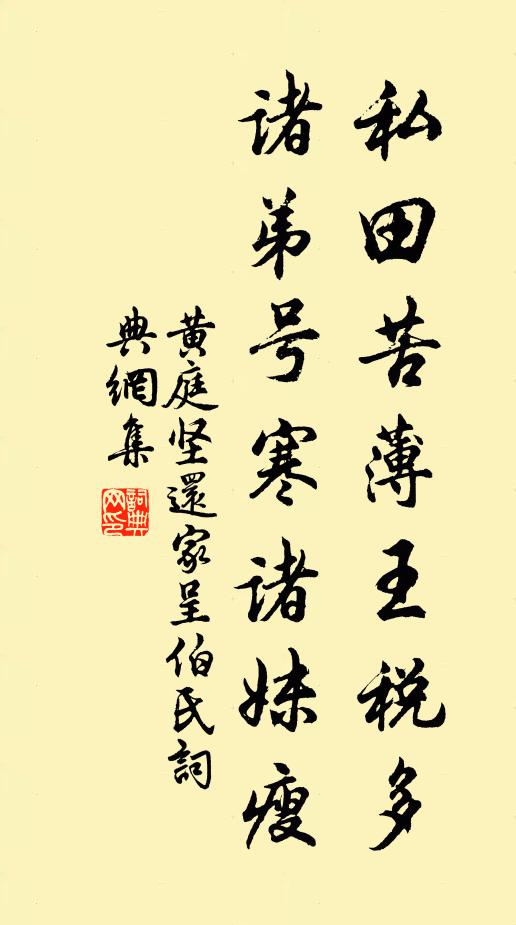 私田苦薄王税多
诸弟号寒诸妹瘦
黄庭坚還家呈伯氏詞
典網集
詞典网印